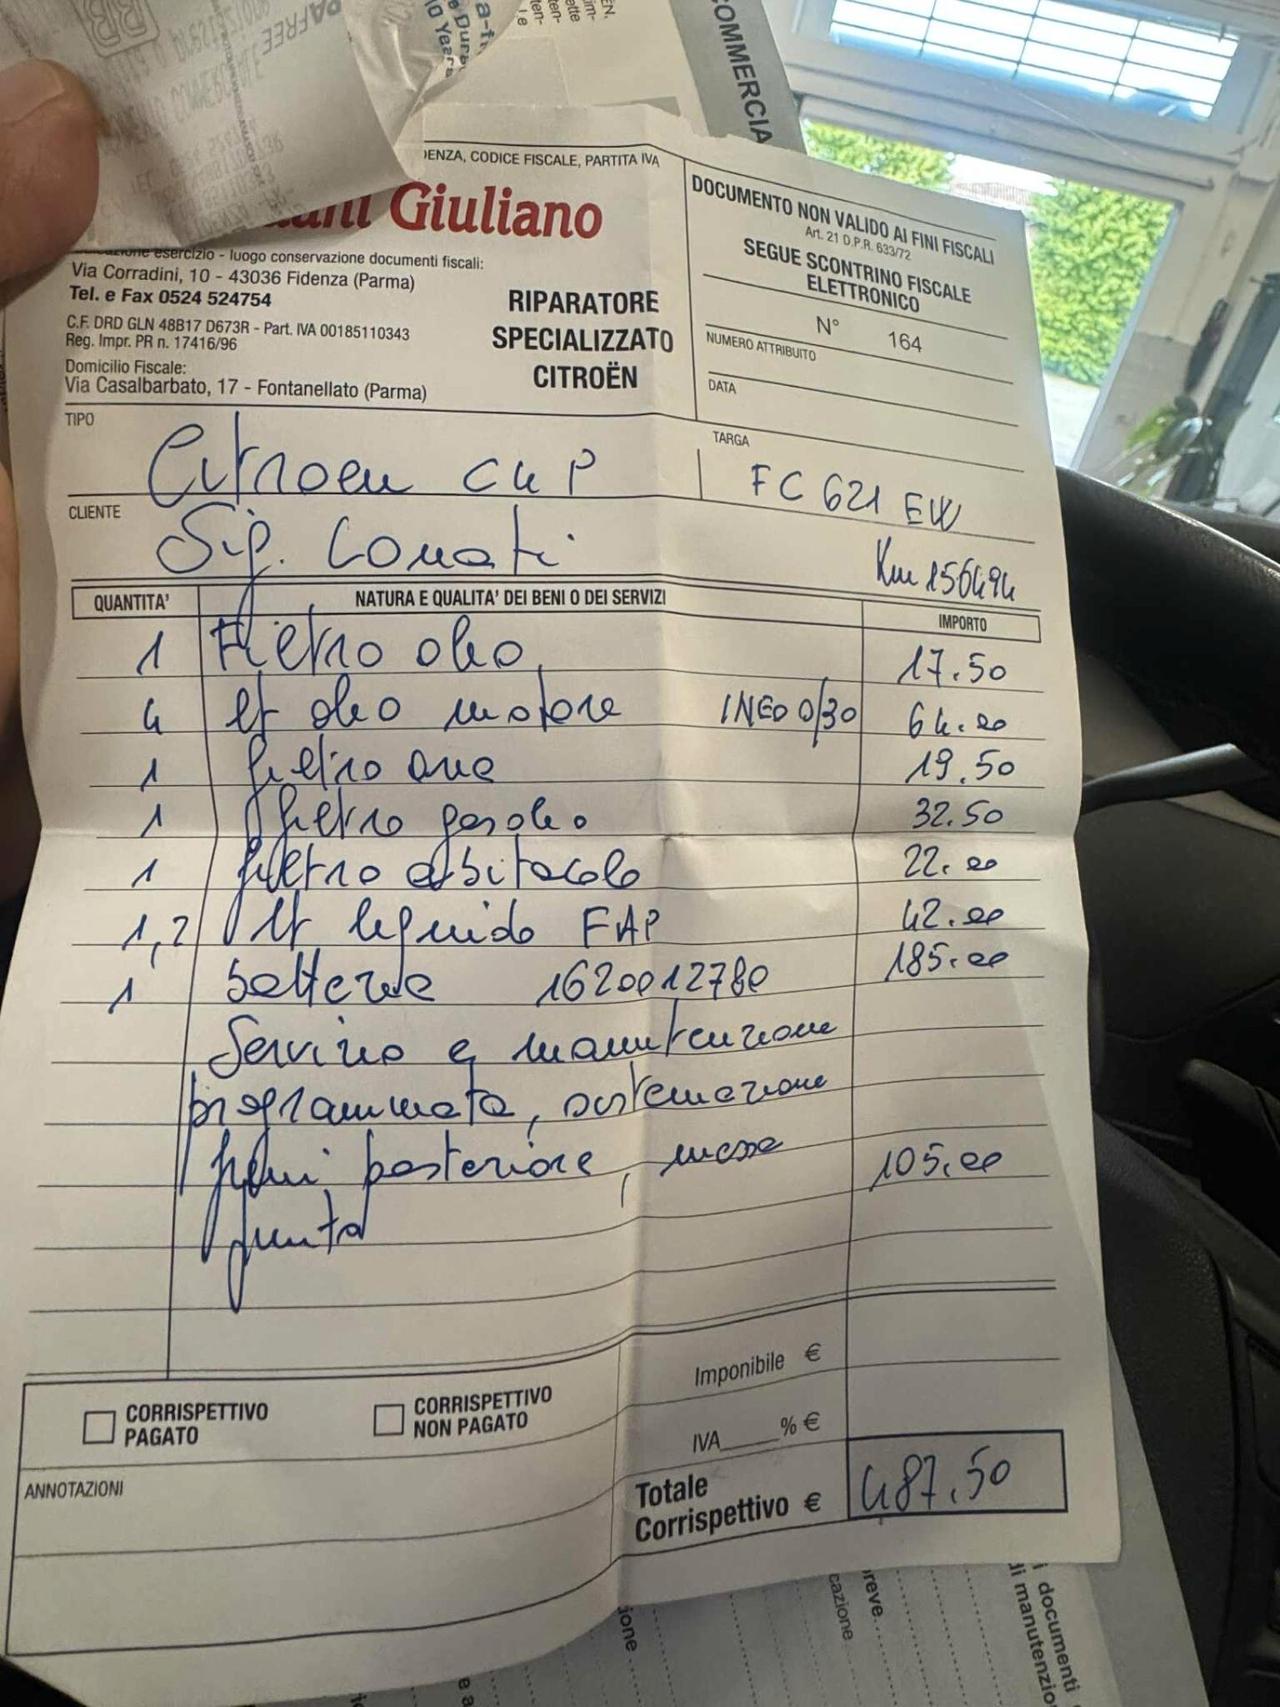 DENZA, CODICE FISCALE, PARTITA IVA
Giuliano
esercizio - luogo conservazione documenti fiscali:
Via Corradini, 10 - 43036 Fidenza (Parma)
Tel. e Fax 0524 524754
C.F. DRD GLN 48B17 D673R - Part. IVA 00185110343
Reg. Impr. PR n. 17416/96
Domicilio Fiscale:
Via Casalbarbato, 17 - Fontanellato (Parma)
RIPARATORE
SPECIALIZZATO
CITROËN
DOCUMENTO NON VALIDO AI FINI FISCALI
Art. 21 D.P.R. 633/72
SEGUE SCONTRINO FISCALE
ELETTRONICO
N° 164
NUMERO ATTRIBUITO
DATA
TIPO
Citroen
TARGA
FC 621 EW
CLIENTE
Sig. Conati
Km 156494
QUANTITA' NATURA E QUALITA' DEI BENI O DEI SERVIZI IMPORTO
1 Filtro olio 17.50
4 lt olio motore INEO 0/30 64.00
1 filtro aria 19.50
1 filtro gasolio 32.50
1 filtro abitacolo 22.00
1,2 lt liquido FAP 42.00
1 batteria 1620012780 185.00
Servizio e manutenzione
programmata, sistemazione
freni posteriore, messa 105.00
punto
Imponibile €
CORRISPETTIVO
PAGATO
CORRISPETTIVO
NON PAGATO
IVA____% €
ANNOTAZIONI
Totale
Corrispettivo € 487.50
COMMERCIA
10 Years
PAFREE
documenti
di manutenzio
reve
cazione
ione